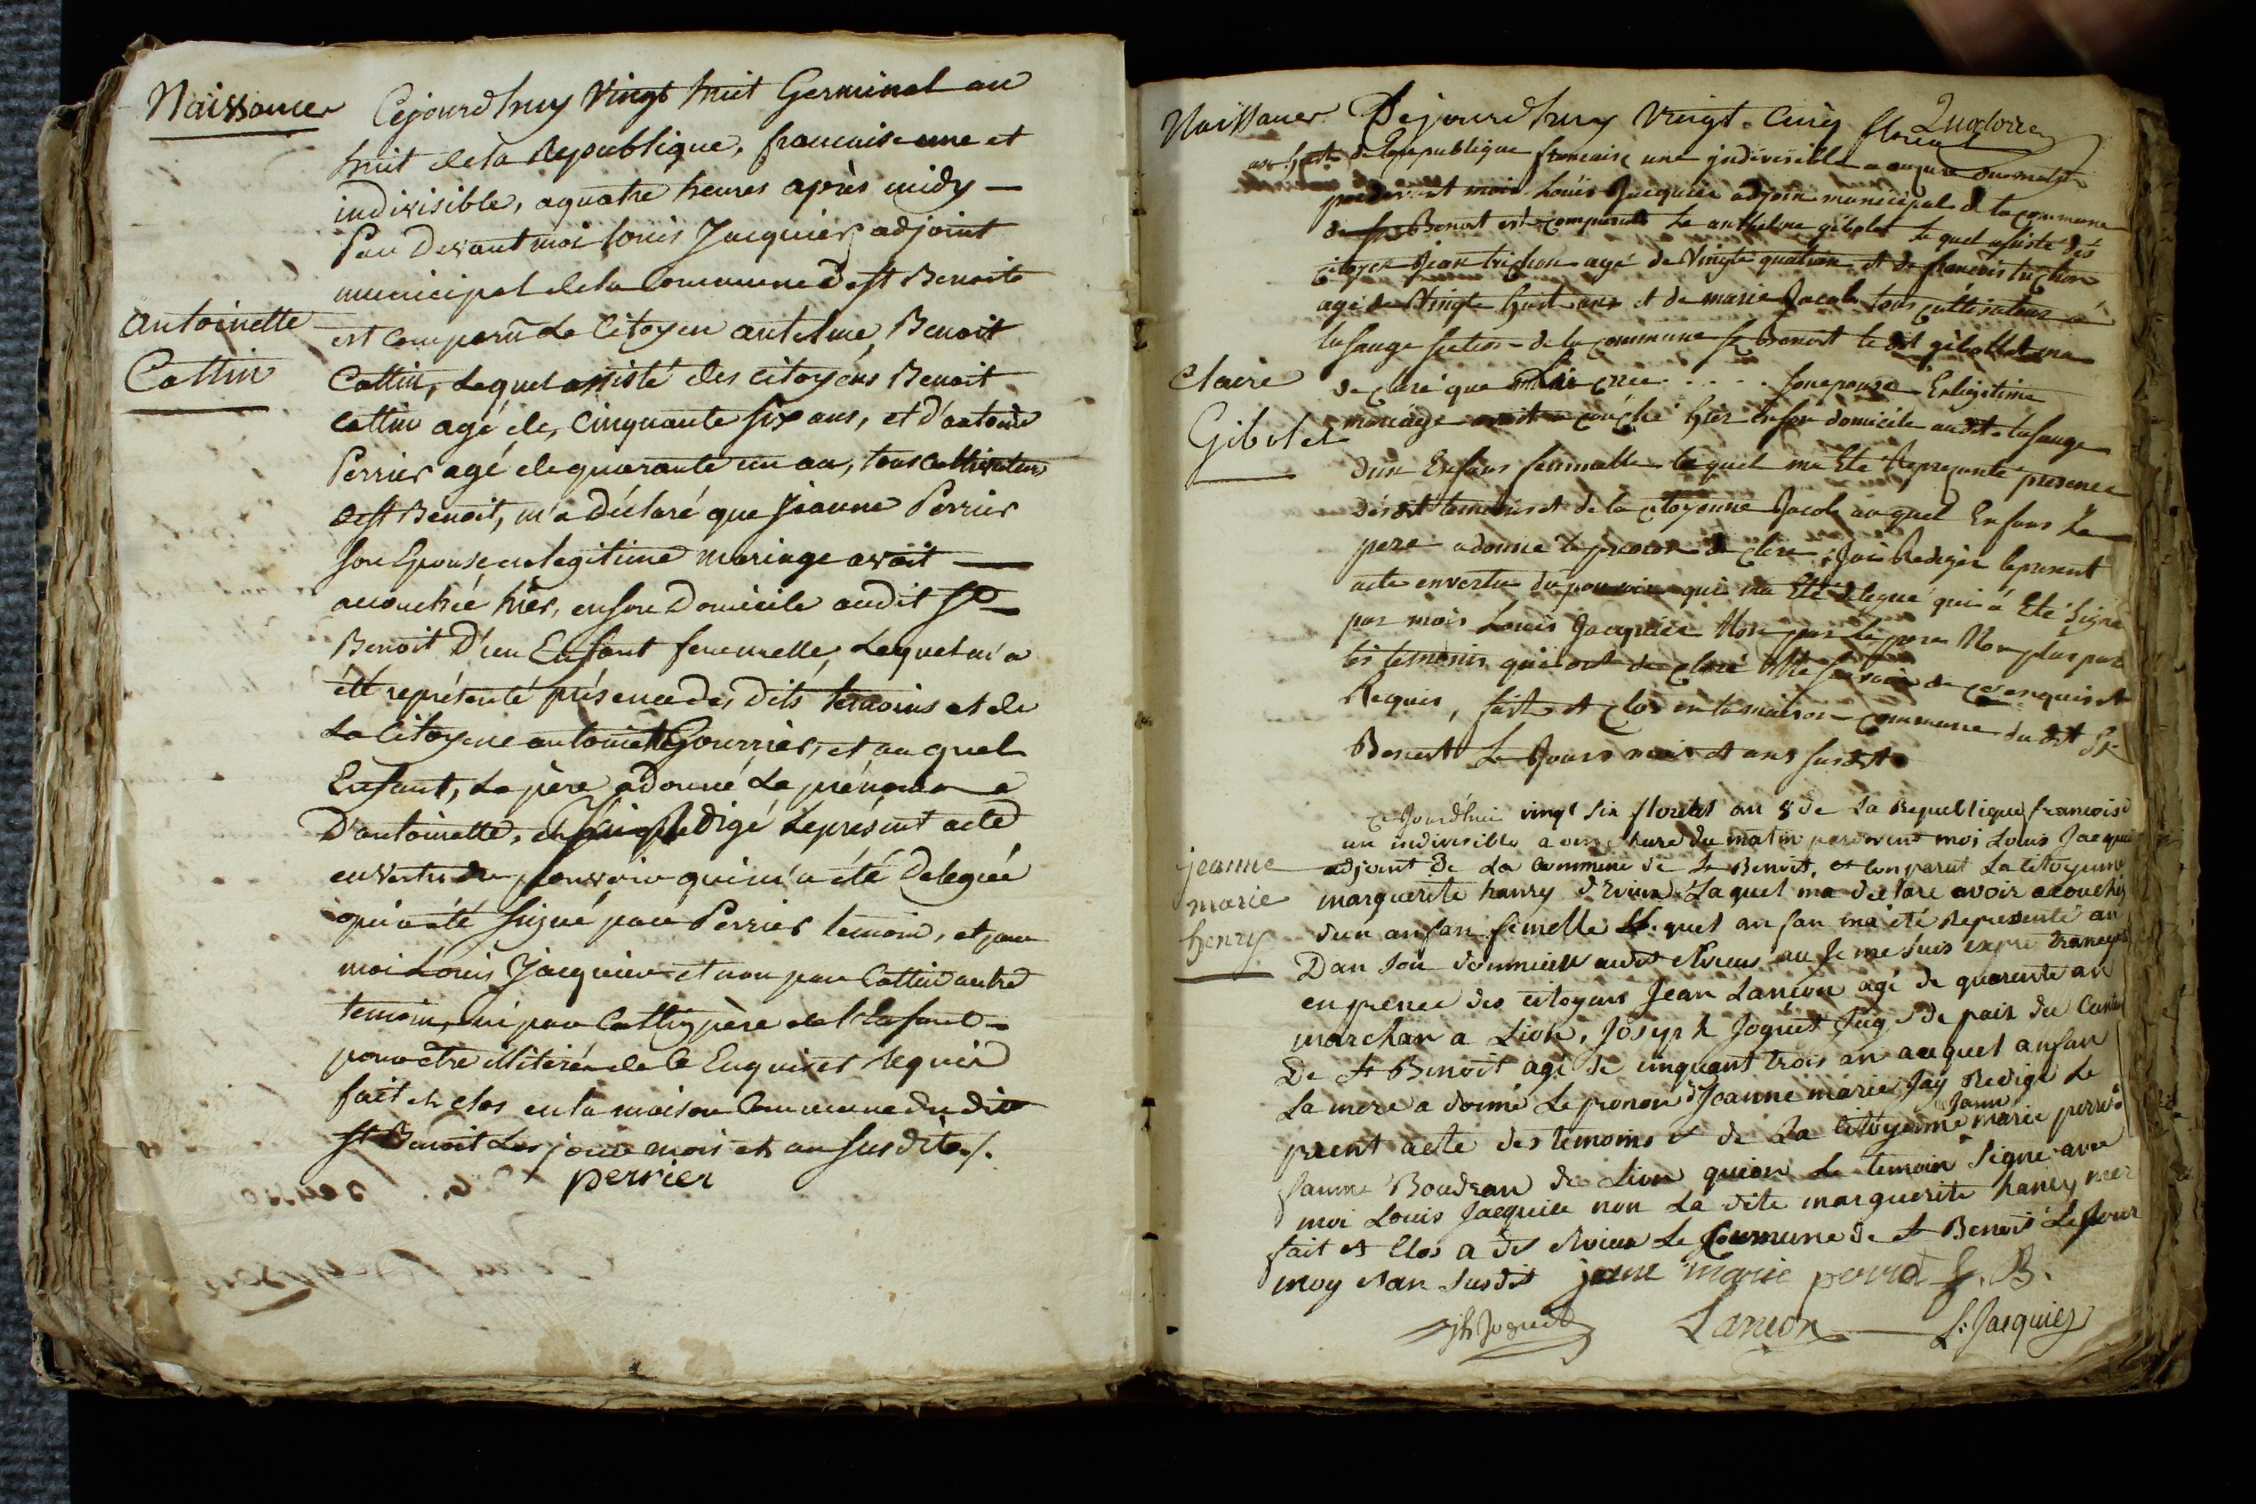 Naissance
Cejourdhuy Vingt huit Germinal an
huit de la Republique, francaise une et
indivisible, a quatre heures après midy
Par Devant moi louis Jacquier adjoint
municipal de la Commune de st Benoit
Antoinette
Cattin
est comparu Le Citoyen antelme Benoit
Cattin, Lequel assisté des citoyens Benoit
Cattin agé de, Cinquante six ans, et d'antoine
Perrier agé de quarante un an, tous cultivateurs
de st Benoit, m'a déclaré que jeanne Perrier
son Epouse en legitime mariage avoit
accouchée hier, en son Domicile au dit st
Benoit D'un Enfant femmelle, Lequel m'a
été représenté présence des dits temoins et de
La Citoyene antoinette Gourrier, et au quel
Enfant, Le père a donné Le prénom
D'antoinette, et j'ai Redigé Le présent acte
en vertu du pouvoir qui m'a été Delegué
qui a été signé par Perrier temoin, et par
moi Louis Jacquier et non par Cattin autre
temoin, ni par Cattin père de l'Enfant
pour être illitéré de Ce Enquis et Requis
fait et clos en la maison Commune du dit
st Benoit Les jour mois et an susdits ./.
perrier
Naissance
Cejourdhuy Vingt Cinq
de la republique francaise une jndivisible a onze
par devant moi Louis Jacquier adjoin municipal de la commune
de st Benoit est comparu Le anthelme gibolet le quel assisté des
citoyen Jean trichon agé de Vingte quatre et de francois trichon
agé de Vingte huit ans et de marie Jacob tous cultivateur a
lusange section de la commune st Benoit le dit gibollet ma
Claire
Gibolet
de claré que . . . . son epouse En legitime
mariage avoit a couché hier en son domicile au dit lusange
dun Enfans femmelle le quel ma Eté Represanté presence
des dit temoins et de la citoyenne Jacob au quel Enfans Le
pere a donné le prenom de clere, jai Redigér le present
acte en vertu du pouvoir qui ma Eté delegué qui a Eté signé
par mois Louis Jacquier Non par Le pere Non plus par
les temoins qui ont de claré de ce enquis et
Requis, fait et clos en la maison commune du dit st
Benoit Le Jours mois et ans susdit
Ce Jourd'hui vingt six floréal an 8 de La Republique francoise
un indivisible a onz heure du matin pardevent moi Louis Jacquie
jeanne
marie
henry
adjoint de La Commune de st Benoit, et Comparut La Citoyenne
marguerite hanry Laquel ma declare avoir acouché
dun anfan fimelle Le quel an fan ma été Represente
Dan son dommicile audit ou Je me suis expre transporté
en presence des citoyens Jean Lancon agé de quarente an
marchan a Lion, Joseph Joguet Juge de paix du Canton
De st Benoit agé de cinquant trois an auquel anfan
La mere a donné Le prenom d'Jeanne marie Jay Redigé Le
prent acte des temoins et de La Citoyenne Janne marie perrod
fame Boudran de Lion quion Le temoin Signe avec
moi Louis Jacquier non La dite marguerite hanry mer
fait et Clos a dit Le Commune de st Benoit Le Jour
moy et an susdit jeane marie perrod f. B.
jh Joguet
Lancon
L. Jacquier